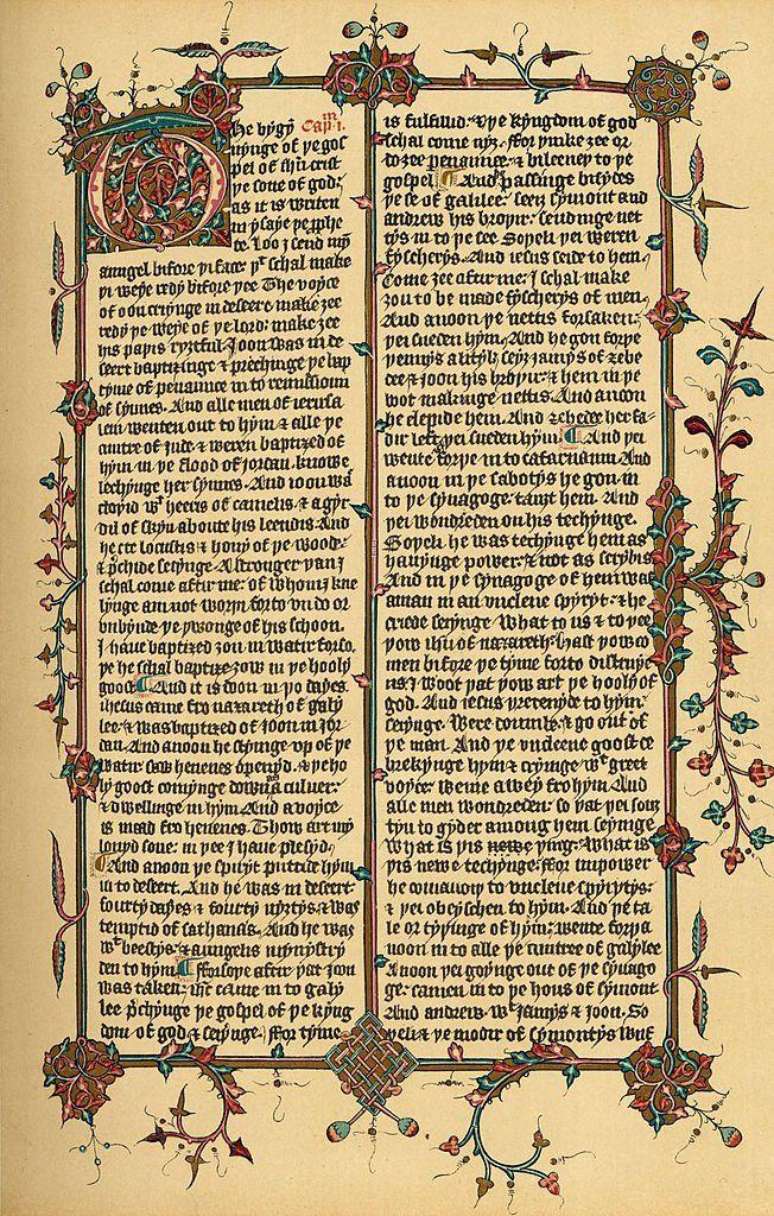 The bygÿn Capᵐ i.
nÿnge of þe gos
pel of ihū crist
þe sone of god:
as it is writen
in ÿsaÿe þe ꝓphe
te. Loo j send mÿn
aungel bifore þi face: þᵗ schal make
þi weÿe redÿ bifore þee. The voÿce
of oon criÿnge in desert: make ȝee
redÿ þe weÿe of þe lord: make ȝee
his paþis rÿȝtful. Joon was in de
sert baptiȝinge & prechinge þe bap
tÿme of penaunce in to remissioun
of sÿnnes. And alle men of ierusa
lem wenten out to hÿm & alle þe
cuntre of jude & weren baptized of
hÿm in þe flood of jordan. knowe
lechÿnge her sÿnnes. And ioon was
cloþid wᵗ heeris of camelis & a gÿr
dil of skÿn aboute his leendis. And
he eet locustis & honÿ of þe wood:
& p̄chide seiÿnge. A stronger þan j
schal come aftir me: of whom j kne
lÿnge am not worþi forto vndo or
vnbÿnde þe þwonge of his schoon.
J haue baptized ȝou in watir forso
þe he schal baptize ȝow in þe hoolÿ
goost. And it is doon in þo daÿes.
ihesus came fro naȝareth of galÿ
lee: & was baptized of joon in jor
dan. And anoon he stiÿnge vp of þe
watir: saw heuenes opened. & þe ho
lÿ goost comÿnge doun as a culuer:
& dwellinge in hÿm. And a voÿce
is maad fro heuenes. Thow art mÿ
louÿd sone: in þee j haue plesÿd.
And anoon þe spirÿt puttide hÿm
in to desert. And he was in desert
fourtÿ daÿes & fourtÿ nÿȝtÿs. & was
temptid of sathanas. And he was
wᵗ beestÿs: & aungelis mÿnÿstrÿ
den to hÿm. fforsoþe aftir þat joon
was taken: ihc̄ came in to galÿ
lee p̄chÿnge þe gospel of þe kÿng
dom of god & seiÿnge. ffor tÿme
is fulfillid: & þe kÿngdom of god
schal come nÿȝ. ffor þinke ȝee or
do ȝee penaunce. & bileeueþ to þe
gospel. And passinge bisÿdes
þe se of galilee: seeȝ sÿmont and
andrew his broþir: sendinge net
tÿs in to þe see. Soþeli þei weren
fÿscherÿs. And iesus seide to hem.
Come ȝee aftir me: J schal make
ȝou to be made fÿscherÿs of men.
And anoon þe nettis forsaken:
þei sueden hÿm. And he gon forþe
þennÿs a litÿl: seiȝ jamÿs of zebe
dee & joon his broþir: & hem in þe
boot makinge nettis. And anoon
he clepide hem. And zebedee her fa-
dir left: þei sueden hÿm. And þei
wente forþe in to cafarnaum. And
anoon in þe sabotÿs he gon in
to þe sÿnagoge: tauȝt hem. And
þei wondreden on his techÿnge.
Soþeli he was techÿnge hem as
hauÿnge power: & not as scrÿbis.
And in þe sÿnagoge of hem was
a man in an vnclene spÿrÿt: & he
criede seiÿnge. What to us & to þee
þow ihū of naȝareth. Hast þow co
men bifore þe tÿme forto distruÿe
us: J woot þat þow art þe hoolÿ of
god. And iesus þretenÿde to hÿm:
seiÿnge. Were doumb. & go out of
þe man. And þe vnclene goost de
brekÿnge hÿm & criÿnge wᵗ greet
voÿce: wente aweÿ fro hÿm. And
alle men wondreden: so þat þei souȝ
ten to gÿder among hem seiÿnge.
What is þis newe þing: What is
þis newe techÿnge: ffor in power
he comaundiþ to vnclene spÿrÿtÿs:
& þei obeÿschen to hÿm. And þe ta
le or tÿþinge of hÿm: wente forþ a
noon in to alle þe cuntree of galÿlee
Anoon þei goÿnge out of þe sÿnago
ge: camen in to þe hous of sÿmont
And andrew. wᵗ jamÿs & joon. So
þeli & þe modir of sÿmontÿs wiif